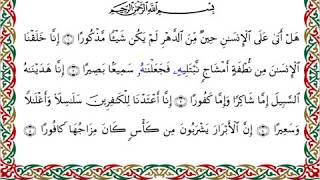 بِسْمِ ٱللَّهِ ٱلرَّحْمَٰنِ ٱلرَّحِيمِ
هَلْ أَتَىٰ عَلَى ٱلْإِنسَٰنِ حِينٌ مِّنَ ٱلدَّهْرِ لَمْ يَكُن شَيْـًٔا مَّذْكُورًا ۝١ إِنَّا خَلَقْنَا
ٱلْإِنسَٰنَ مِن نُّطْفَةٍ أَمْشَاجٍ نَّبْتَلِيهِ فَجَعَلْنَٰهُ سَمِيعًۢا بَصِيرًا ۝٢ إِنَّا هَدَيْنَٰهُ
ٱلسَّبِيلَ إِمَّا شَاكِرًا وَإِمَّا كَفُورًا ۝٣ إِنَّآ أَعْتَدْنَا لِلْكَٰفِرِينَ سَلَٰسِلَا۟ وَأَغْلَٰلًا
وَسَعِيرًا ۝٤ إِنَّ ٱلْأَبْرَارَ يَشْرَبُونَ مِن كَأْسٍ كَانَ مِزَاجُهَا كَافُورًا ۝٥